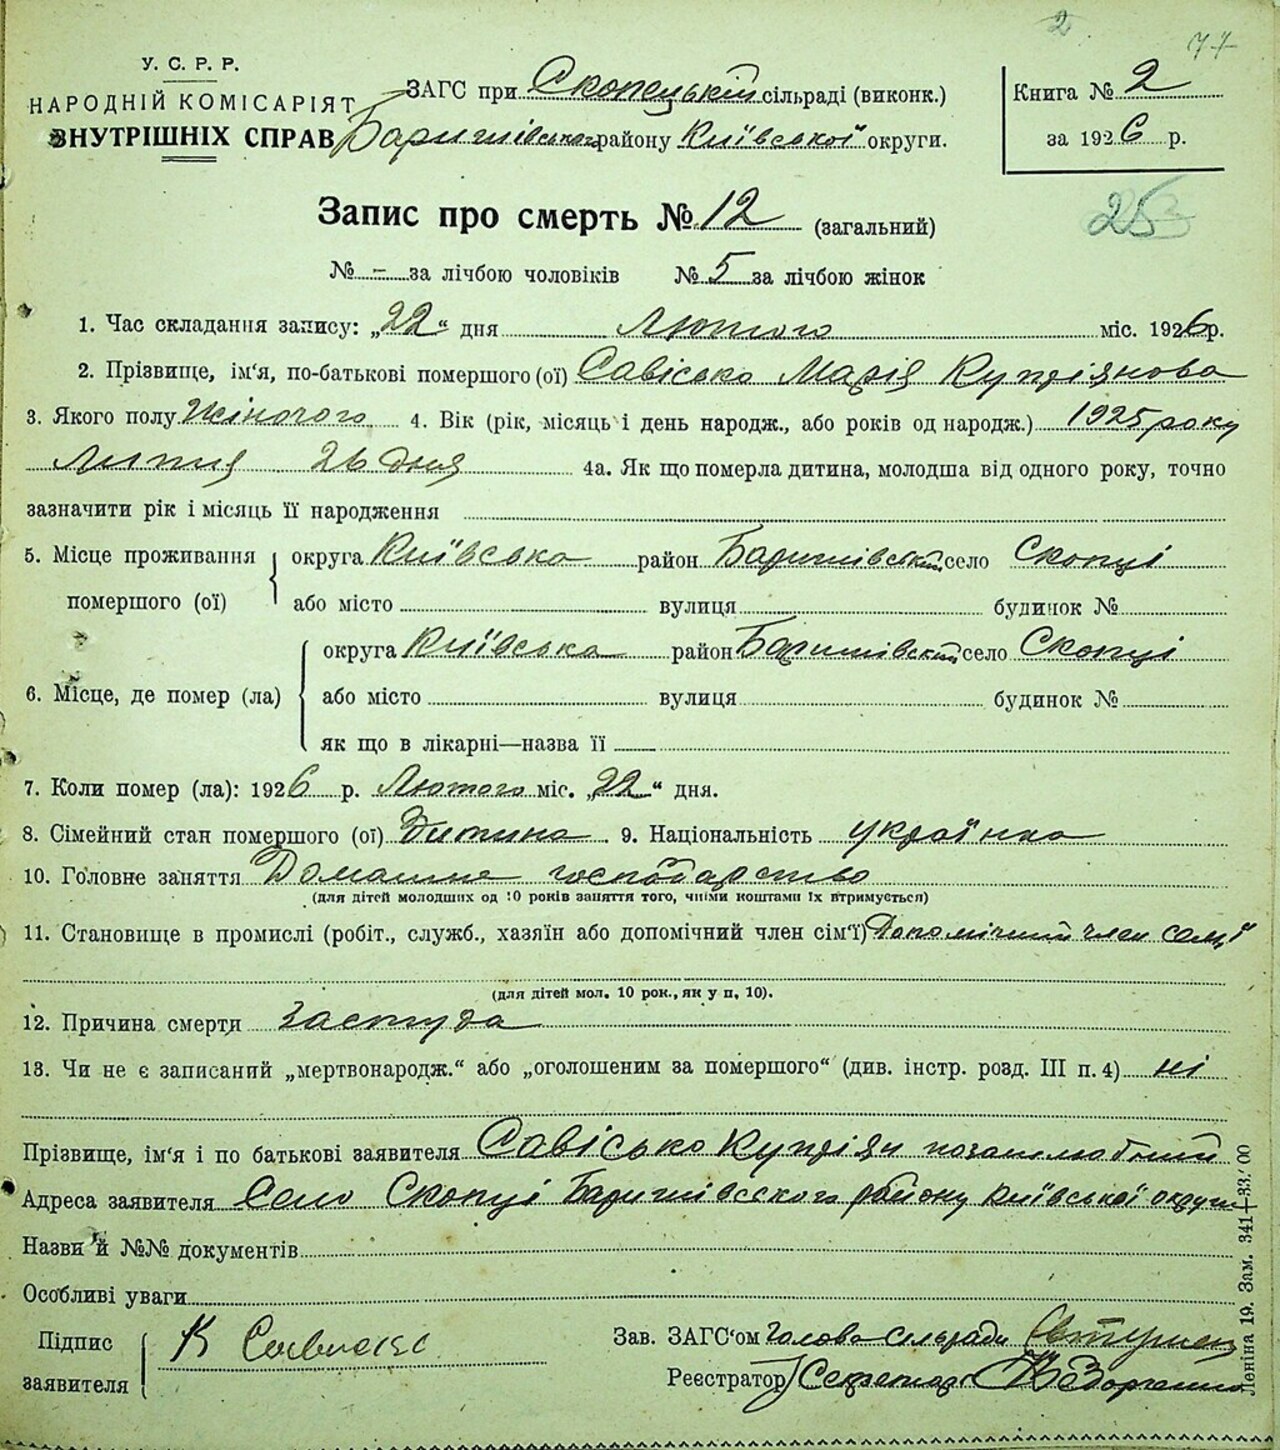 2 77
У. С. Р. Р.
НАРОДНІЙ КОМІСАРІЯТ
ВНУТРІШНІХ СПРАВ
ЗАГС при Скопецькій сільраді (виконк.)
Баришівського району Київської округи.
Книга № 2
за 1926 р.
25
Запис про смерть № 12 (загальний)
№ - за лічбою чоловіків № 5 за лічбою жінок
1. Час складання запису: „22“ дня Лютого міс. 1926 р.
2. Прізвище, ім'я, по-батькові помершого (ої) Савісько Марія Купріянова
3. Якого полу Жіночого 4. Вік (рік, місяць і день народж., або років од народж.) 1925 року
Липня 26 дня 4а. Як що померла дитина, молодша від одного року, точно
зазначити рік і місяць її народження
5. Місце проживання помершого (ої) округа Київська район Баришівський село Скопці
або місто вулиця будинок №
6. Місце, де помер (ла) округа Київська район Баришівский село Скопці
або місто вулиця будинок №
як що в лікарні—назва її
7. Коли помер (ла): 1926 р. Лютого міс. „22“ дня.
8. Сімейний стан помершого (ої) Дитина 9. Національність українка
10. Головне заняття Домашнє господарство
(для дітей молодших од 10 років заняття того, чиїми коштами їх втримується)
11. Становище в промислі (робіт., служб., хазяїн або допомічний член сім'ї) Допомічний член семї
(для дітей мол. 10 рок., як у п. 10).
12. Причина смерти Застуда
13. Чи не є записаний „мертвонародж.“ або „оголошеним за помершого“ (див. інстр. розд. III п. 4) ні
Прізвище, ім'я і по батькові заявителя Савісько Купріян позашлюбний
Адреса заявителя Село Скопці Баришівсского району Київської округи
Назви й №№ документів
Особливі уваги
Підпис заявителя К Савиське
Зав. ЗАГС'ом Голова сільради
Реєстратор Секретар
Леніна 19. Зам. 341